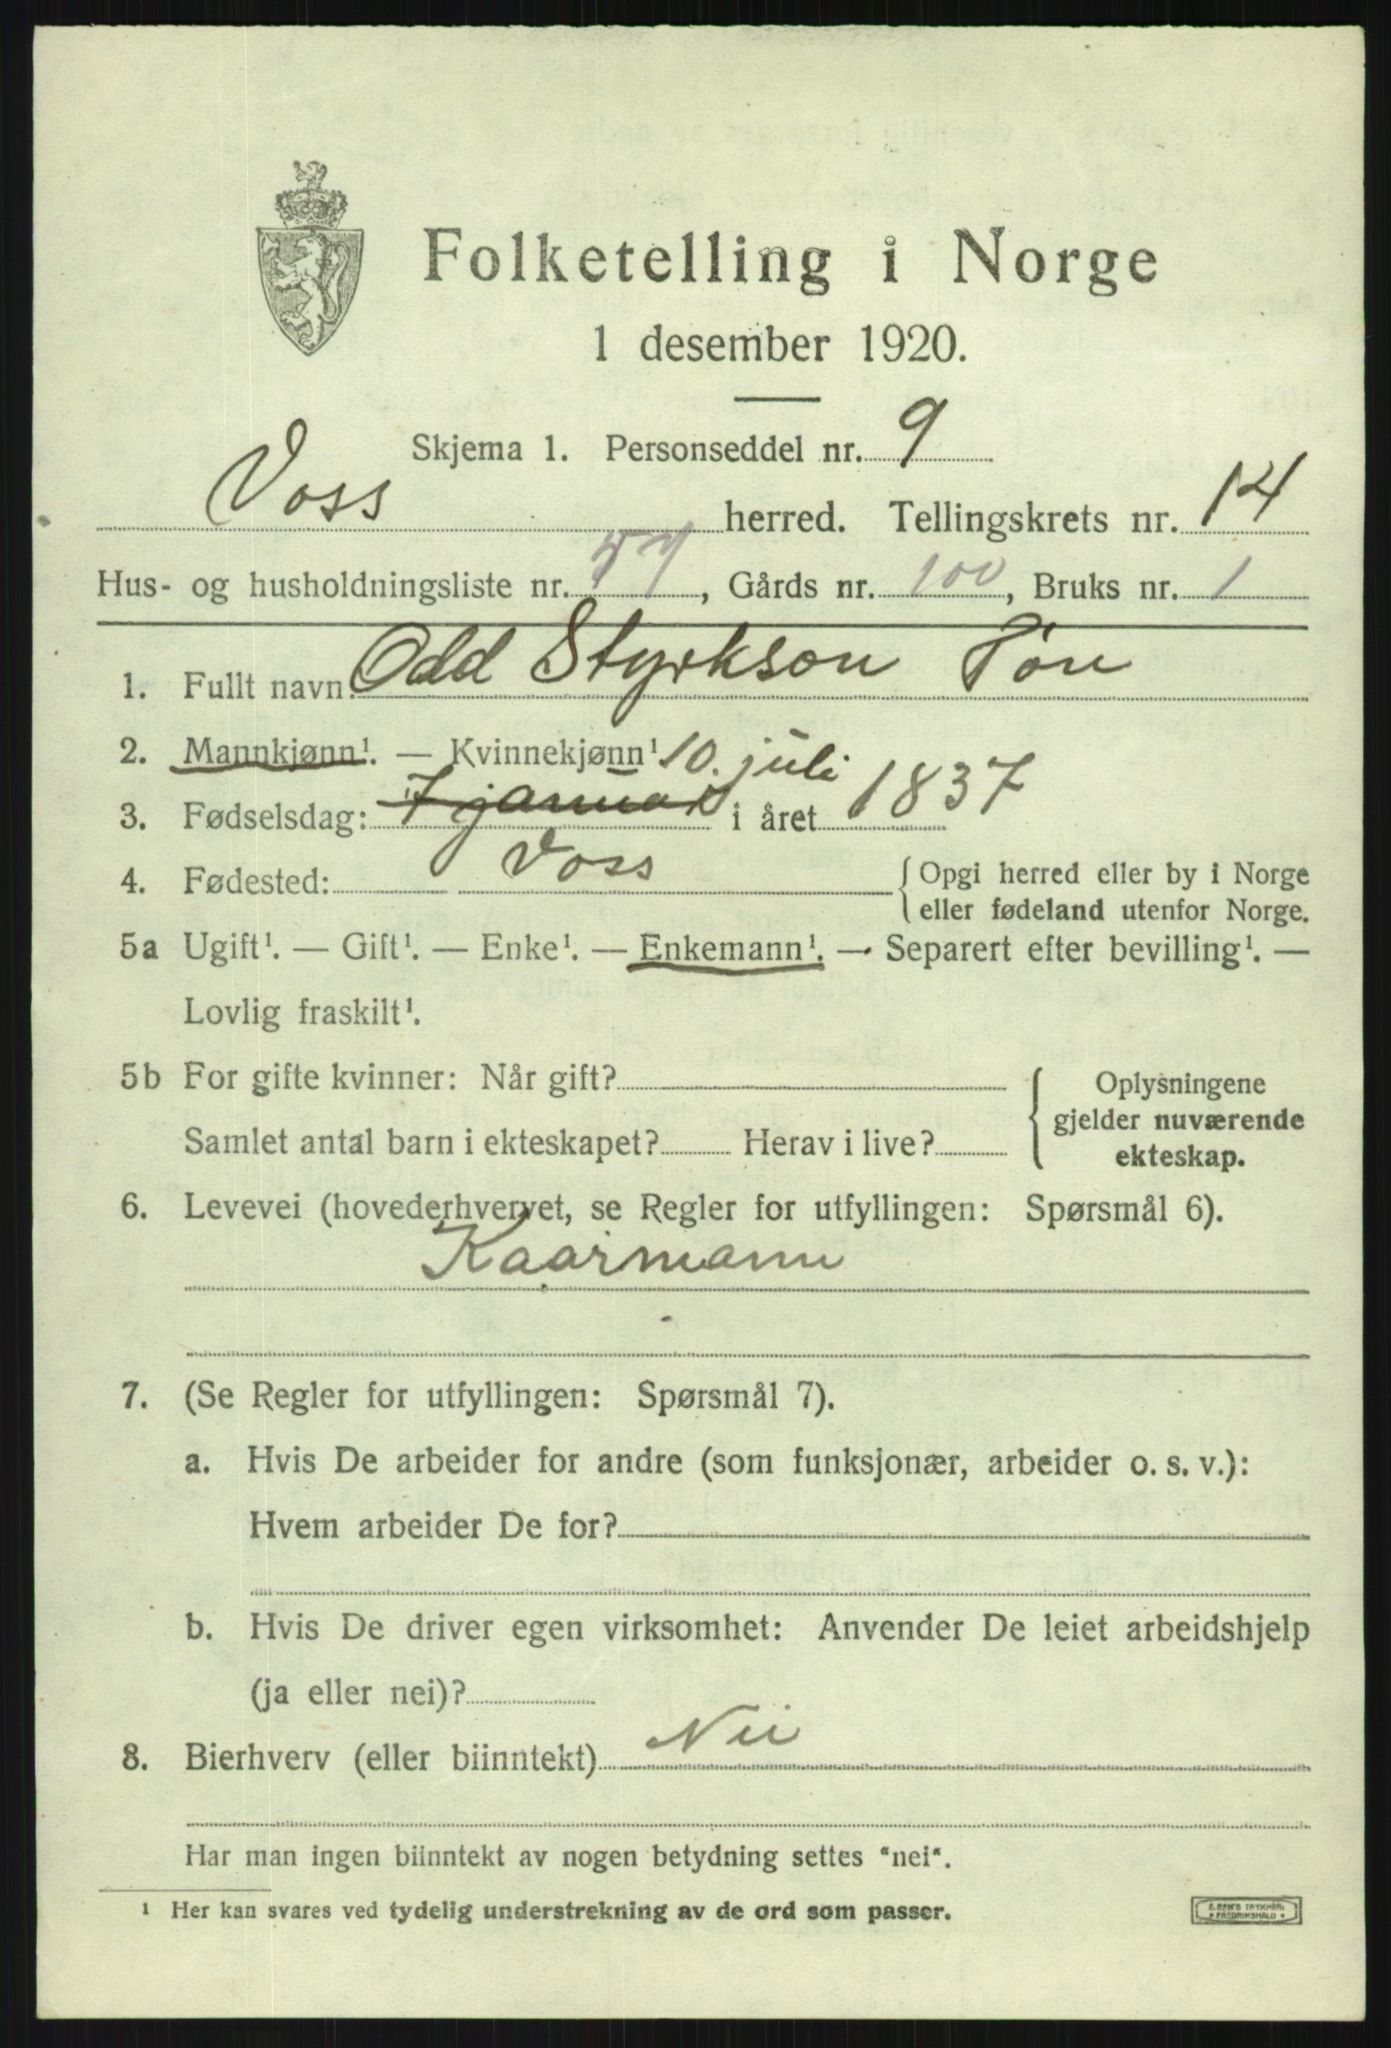 Folketelling i Norge
1 desember 1920.
Skjema 1. Personseddel nr. 9
Voss herred. Tellingskrets nr. 14
Hus- og husholdningsliste nr. 57, Gårds nr. 100, Bruks nr. 1
1. Fullt navn: Odd Styrkson Tøn
2. Mannkjønn¹. — Kvinnekjønn¹ 10. juli
3. Fødselsdag: 7 januar i året 1837
4. Fødested: Voss {Opgi herred eller by i Norge
eller fødeland utenfor Norge.
5a Ugift¹. — Gift¹. — Enke¹. — Enkemann¹. — Separert efter bevilling¹. —
Lovlig fraskilt¹.
5b For gifte kvinner: Når gift?
Samlet antal barn i ekteskapet? Herav i live?
{Oplysningene
gjelder nuværende
ekteskap.
6. Levevei (hovederhvervet, se Regler for utfyllingen: Spørsmål 6).
Kaarmann
7. (Se Regler for utfyllingen: Spørsmål 7).
a. Hvis De arbeider for andre (som funksjonær, arbeider o. s. v.):
Hvem arbeider De for?
b. Hvis De driver egen virksomhet: Anvender De leiet arbeidshjelp
(ja eller nei)?
8. Bierhverv (eller biinntekt) Nei
Har man ingen biinntekt av nogen betydning settes "nei".
¹ Her kan svares ved tydelig understrekning av de ord som passer.